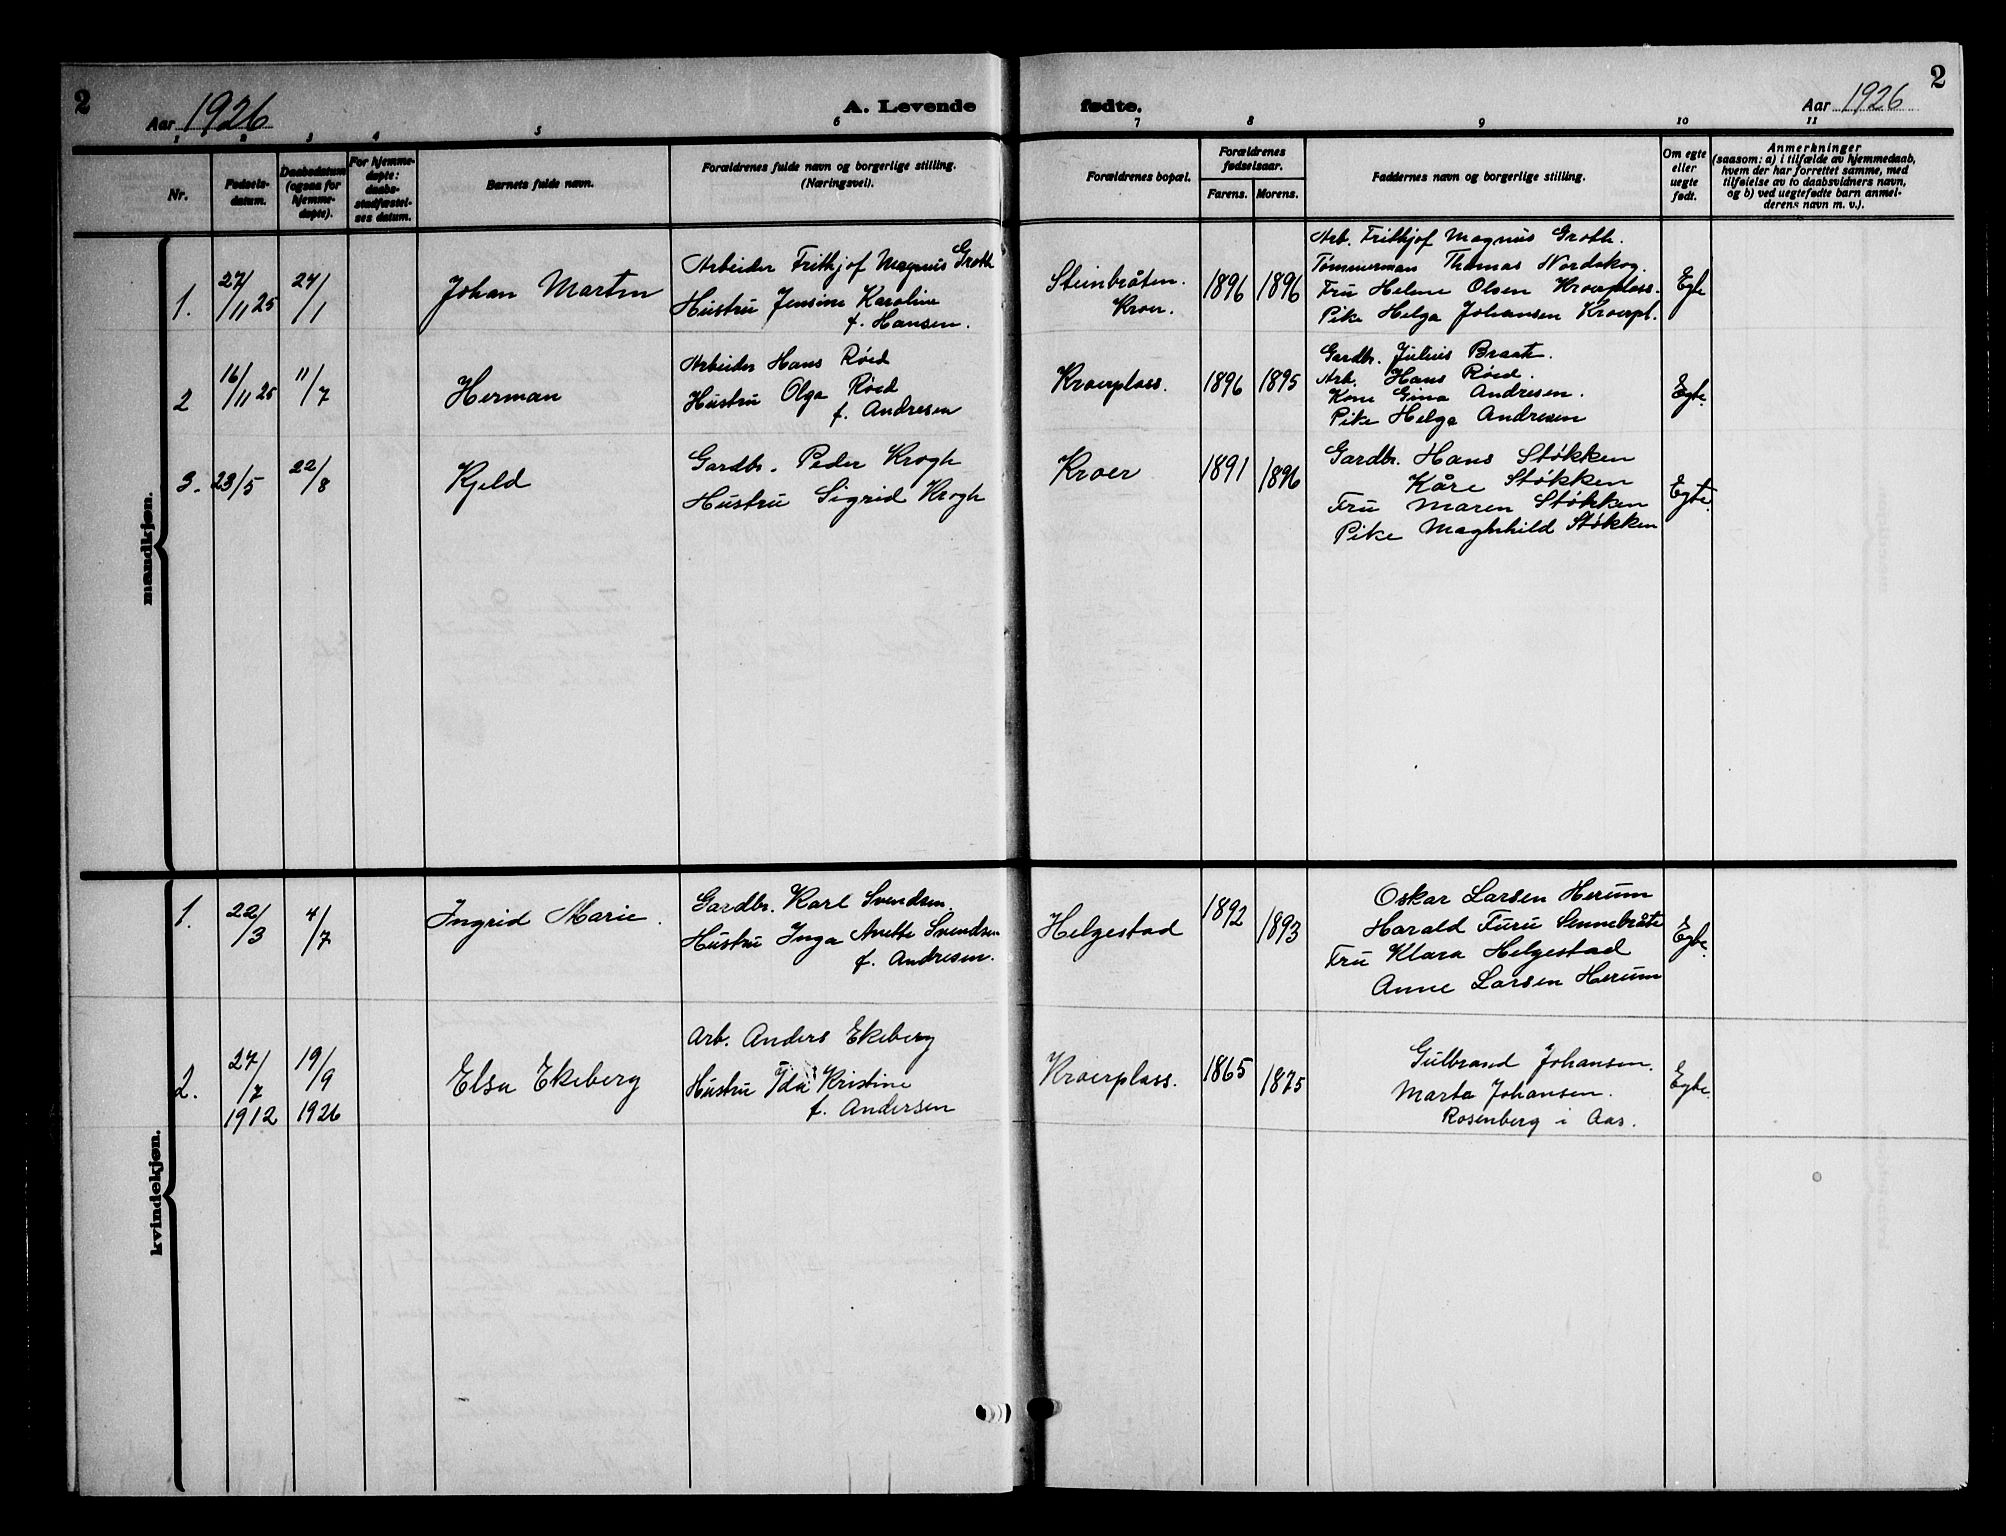 2
Aar 1926
A. Levende
fødte.
Aar 1926
2
1 2 3 4 5 6 7 8 9 10 11
Nr.
Fødsels-
datum.
Daabsdatum
(ogsaa for
hjemme-
døpte).
For hjemme-
døpte:
daabs-
stadfæstel-
ses datum.
Barnets fulde navn.
Forældrenes fulde navn og borgerlige stilling.
(Næringsvei).
Forældrenes bopæl.
Forældrenes
fødselsaar.
Farens. Morens.
Faddernes navn og borgerlige stilling.
Om egte
eller
uegte
født.
Anmerkninger
(saasom: a) i tilfælde av hjemmedaab,
hvem der har forrettet samme, med
tilføielse av to daabsvidners navn,
og b) ved uegtefødte barn anmel-
derens navn m. v.).
mandkjøn.
1.
27/11 25
24/1
Johan Martin
Arbeider Frithjof Magnus Groth
Hustru Jensine Karoline
f. Hansen.
Steinbråten.
Kroer.
1896 1896
Arb. Frithjof Magnus Groth.
Tømmerman Thomas Nordskog.
Fru Helene Olsen Kroerplass.
Pike Helga Johansen Kroerpl.
Egte
2
16/11 25
11/7
Herman
Arbeider Hans Røed
Hustru Olga Røed
f. Andresen
Kroerplass.
1896 1895
Gardbr. Julius Braate.
Arb. Hans Røed.
Kone Gina Andresen.
Pike Helga Andresen
Egte.
3.
23/5
22/8
Kjeld
Gardbr. Peder Krogh
Hustru Sigrid Krogh
Kroer
1891 1896
Gardbr. Hans Støkken
Kåre Støkken
Fru Maren Støkken
Pike Maghhild Støkken
Egte.
kvindekjøn.
1.
22/3
4/7
Ingrid Marie.
Gardbr. Karl Svendsen.
Hustru Inga Anette Svendsen
f. Andresen.
Helgestad
1892 1893
Oskar Larsen Herum
Harald Furu Sennebråte
Fru Klara Helgestad
Anne Larsen Herum
Egte.
2.
27/7
1912
19/9
1926
Elsa Ekeberg
Arb. Anders Ekeberg
Hustru Ida Kristine
f. Andersen
Kroerplass.
1865 1875
Gulbrand Johansen.
Marta Johansen.
Rosenberg i Aas.
Egte.